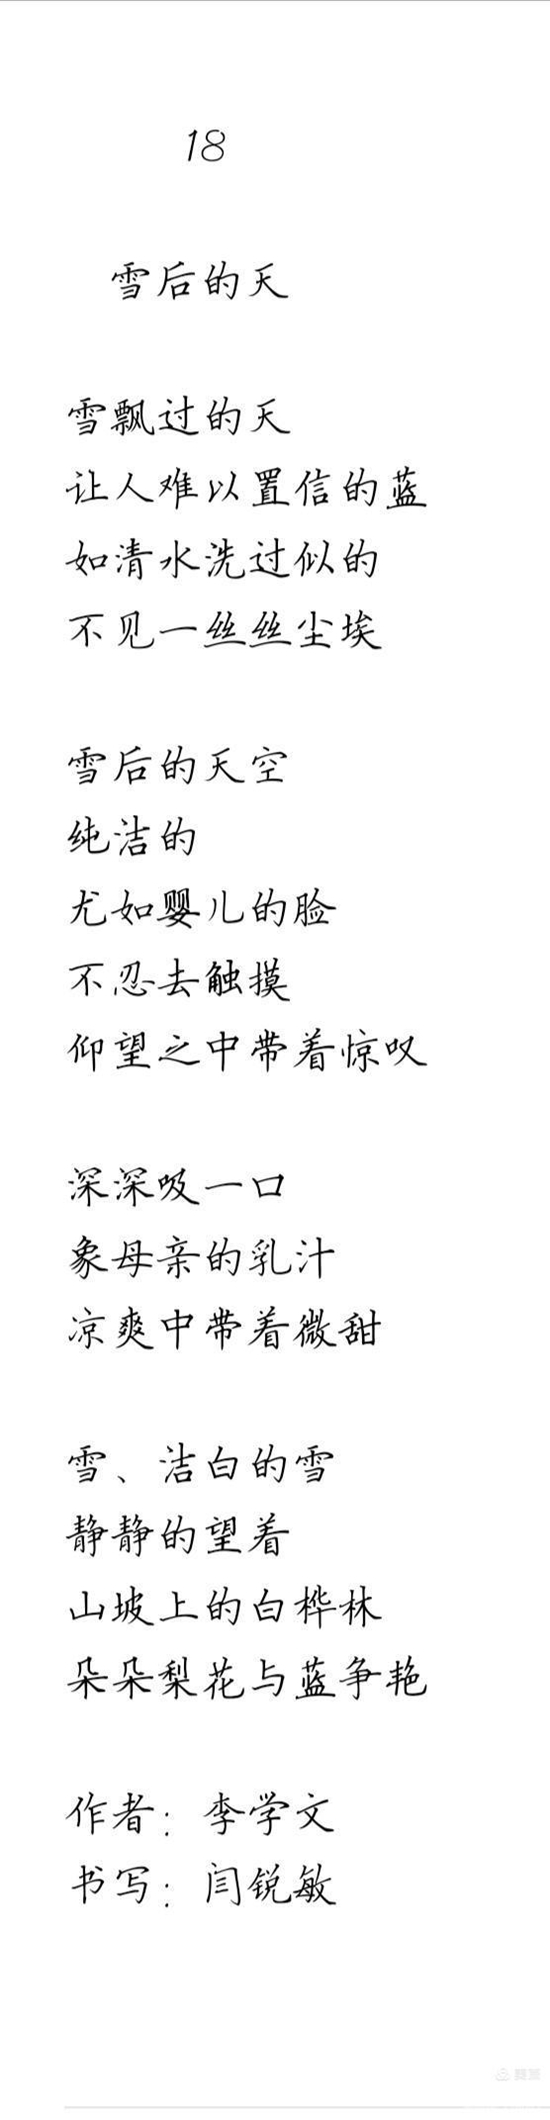 18
雪后的天
雪飘过的天
让人难以置信的蓝
如清水洗过似的
不见一丝丝尘埃
雪后的天空
纯洁的
尤如婴儿的脸
不忍去触摸
仰望之中带着惊叹
深深吸一口
象母亲的乳汁
凉爽中带着微甜
雪、洁白的雪
静静的望着
山坡上的白桦林
朵朵梨花与蓝争艳
作者：李学文
书写：闫锐敏
美篇